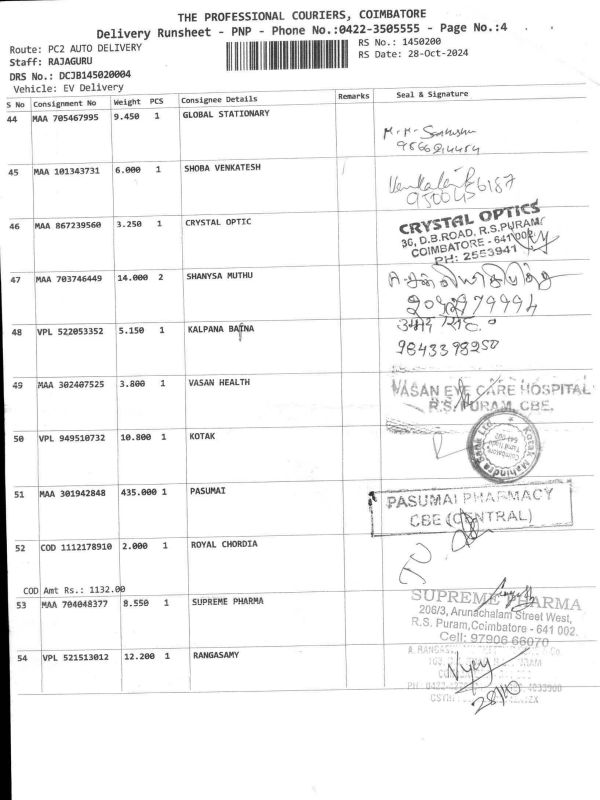 THE PROFESSIONAL COURIERS, COIMBATORE
Delivery Runsheet - PNP - Phone No.:0422-3505555 - Page No.:4
Route: PC2 AUTO DELIVERY
RS No.: 1450200
Staff: RAJAGURU
RS Date: 28-Oct-2024
DRS No.: DCJB145020004
Vehicle: EV Delivery
S No Consignment No Weight PCS Consignee Details Remarks Seal & Signature
44 MAA 705467995 9.450 1 GLOBAL STATIONARY
45 MAA 101343731 6.000 1 SHOBA VENKATESH
46 MAA 867239560 3.250 1 CRYSTAL OPTIC
CRYSTAL OPTICS
36, D.B.ROAD, R.S.PURAM
COIMBATORE - 641 002
PH: 2553941
47 MAA 703746449 14.000 2 SHANYSA MUTHU
48 VPL 522053352 5.150 1 KALPANA BAFNA
9843398250
49 MAA 302407525 3.800 1 VASAN HEALTH
VASAN EYE CARE HOSPITAL
R.S. PURAM, CBE.
50 VPL 949510732 10.800 1 KOTAK
Kotak Mahindra Bank Ltd.
51 MAA 301942848 435.000 1 PASUMAI
PASUMAI PHARMACY
CBE (CENTRAL)
52 COD 1112178910 2.000 1 ROYAL CHORDIA
COD Amt Rs.: 1132.00
53 MAA 704048377 8.550 1 SUPREME PHARMA
SUPREME PHARMA
206/3, Arunachalam Street West,
R.S. Puram, Coimbatore - 641 002.
Cell: 97906 66070
54 VPL 521513012 12.200 1 RANGASAMY
28/10